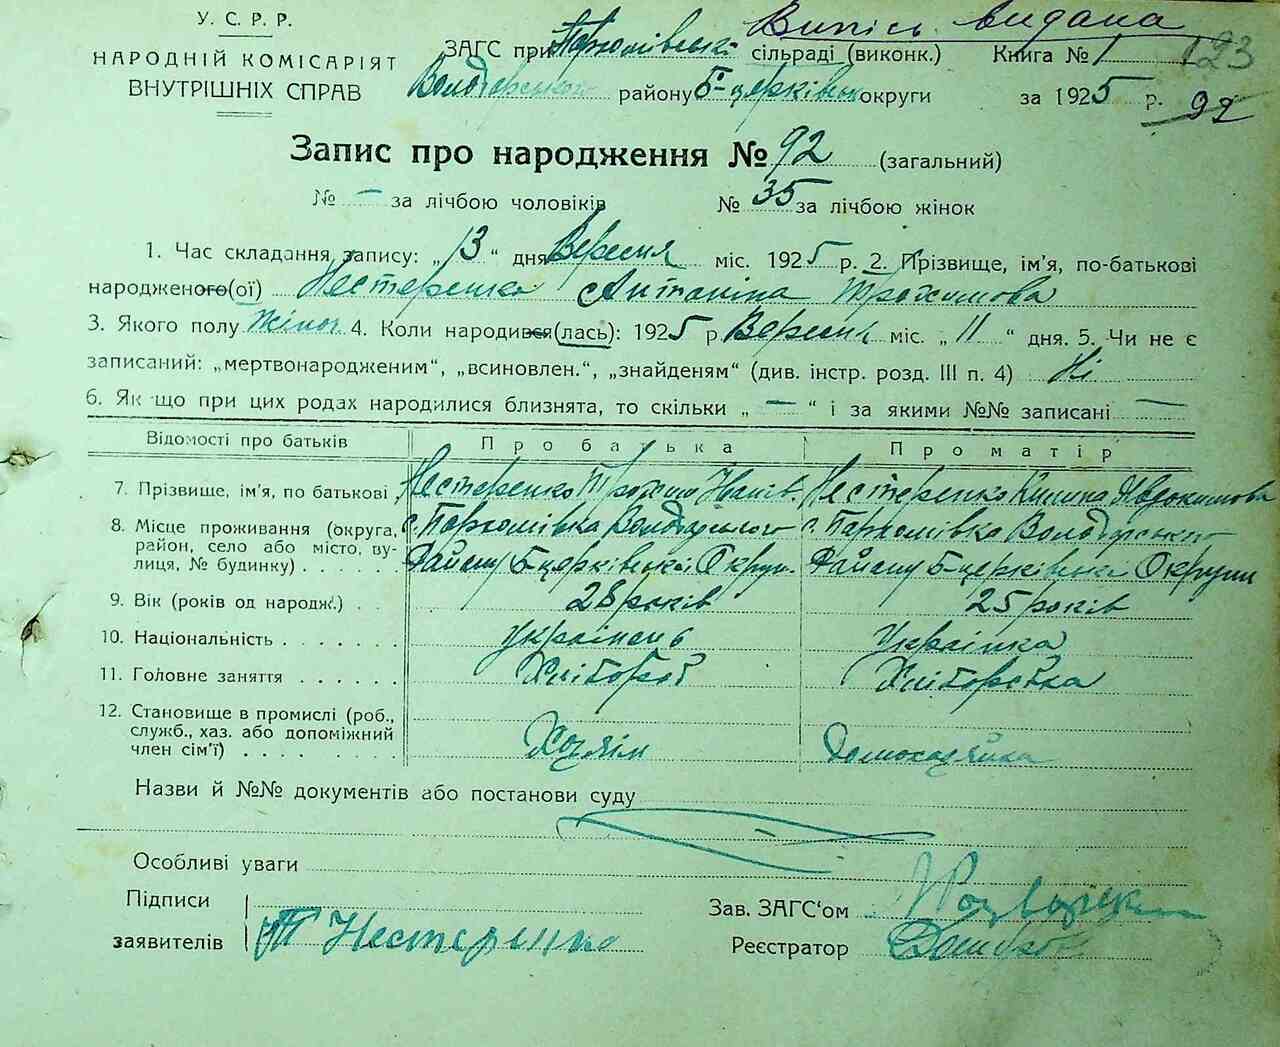 Випись видана
У. С. Р. Р.
НАРОДНІЙ КОМІСАРІЯТ
ВНУТРІШНІХ СПРАВ
ЗАГС при Пархомівські сільраді (виконк.) Книга № 1 123
Володарського району Б-церківськ округи за 1925 р. 92
Запис про народження № 92 (загальний)
№ — за лічбою чоловіків № 35 за лічбою жінок
1. Час складання запису: „ 13 “ дня Вересня міс. 1925 р. 2. Прізвище, ім'я, по-батькові
народженого(ої) Нестеренко Антаніна Трохимова
3. Якого полу Жіноч 4. Коли народився(лась): 1925 р Вересня міс. „ 11 “ дня. 5. Чи не є
записаний: „мертвонародженим“, „всиновлен.“, „знайденям“ (див. інстр. розд. III п. 4) Ні
6. Як що при цих родах народилися близнята, то скільки „ — “ і за якими №№ записані —
Відомості про батьків Про батька Про матір
7. Прізвище, ім'я, по батькові Нестеренко Трохим Іванів. Нестеренко Килина Явдокимова
8. Місце проживання (округа, с. Пархомівка Володарського с. Пархомівка Володарського
район, село або місто, ву-
лиця, № будинку) Району Б-церківської Округи. Району Б-церківська Округи
9. Вік (років од народж.) 28 років 25 років
10. Національність українець Українка
11. Головне заняття Хлібороб Хліборобка
12. Становище в промислі (роб.,
служб., хаз. або допоміжний
член сім'ї) Хазяїн Домохазяйка
Назви й №№ документів або постанови суду
Особливі уваги
Підписи
заявителів Т Нестеренко
Зав. ЗАГС'ом
Реєстратор